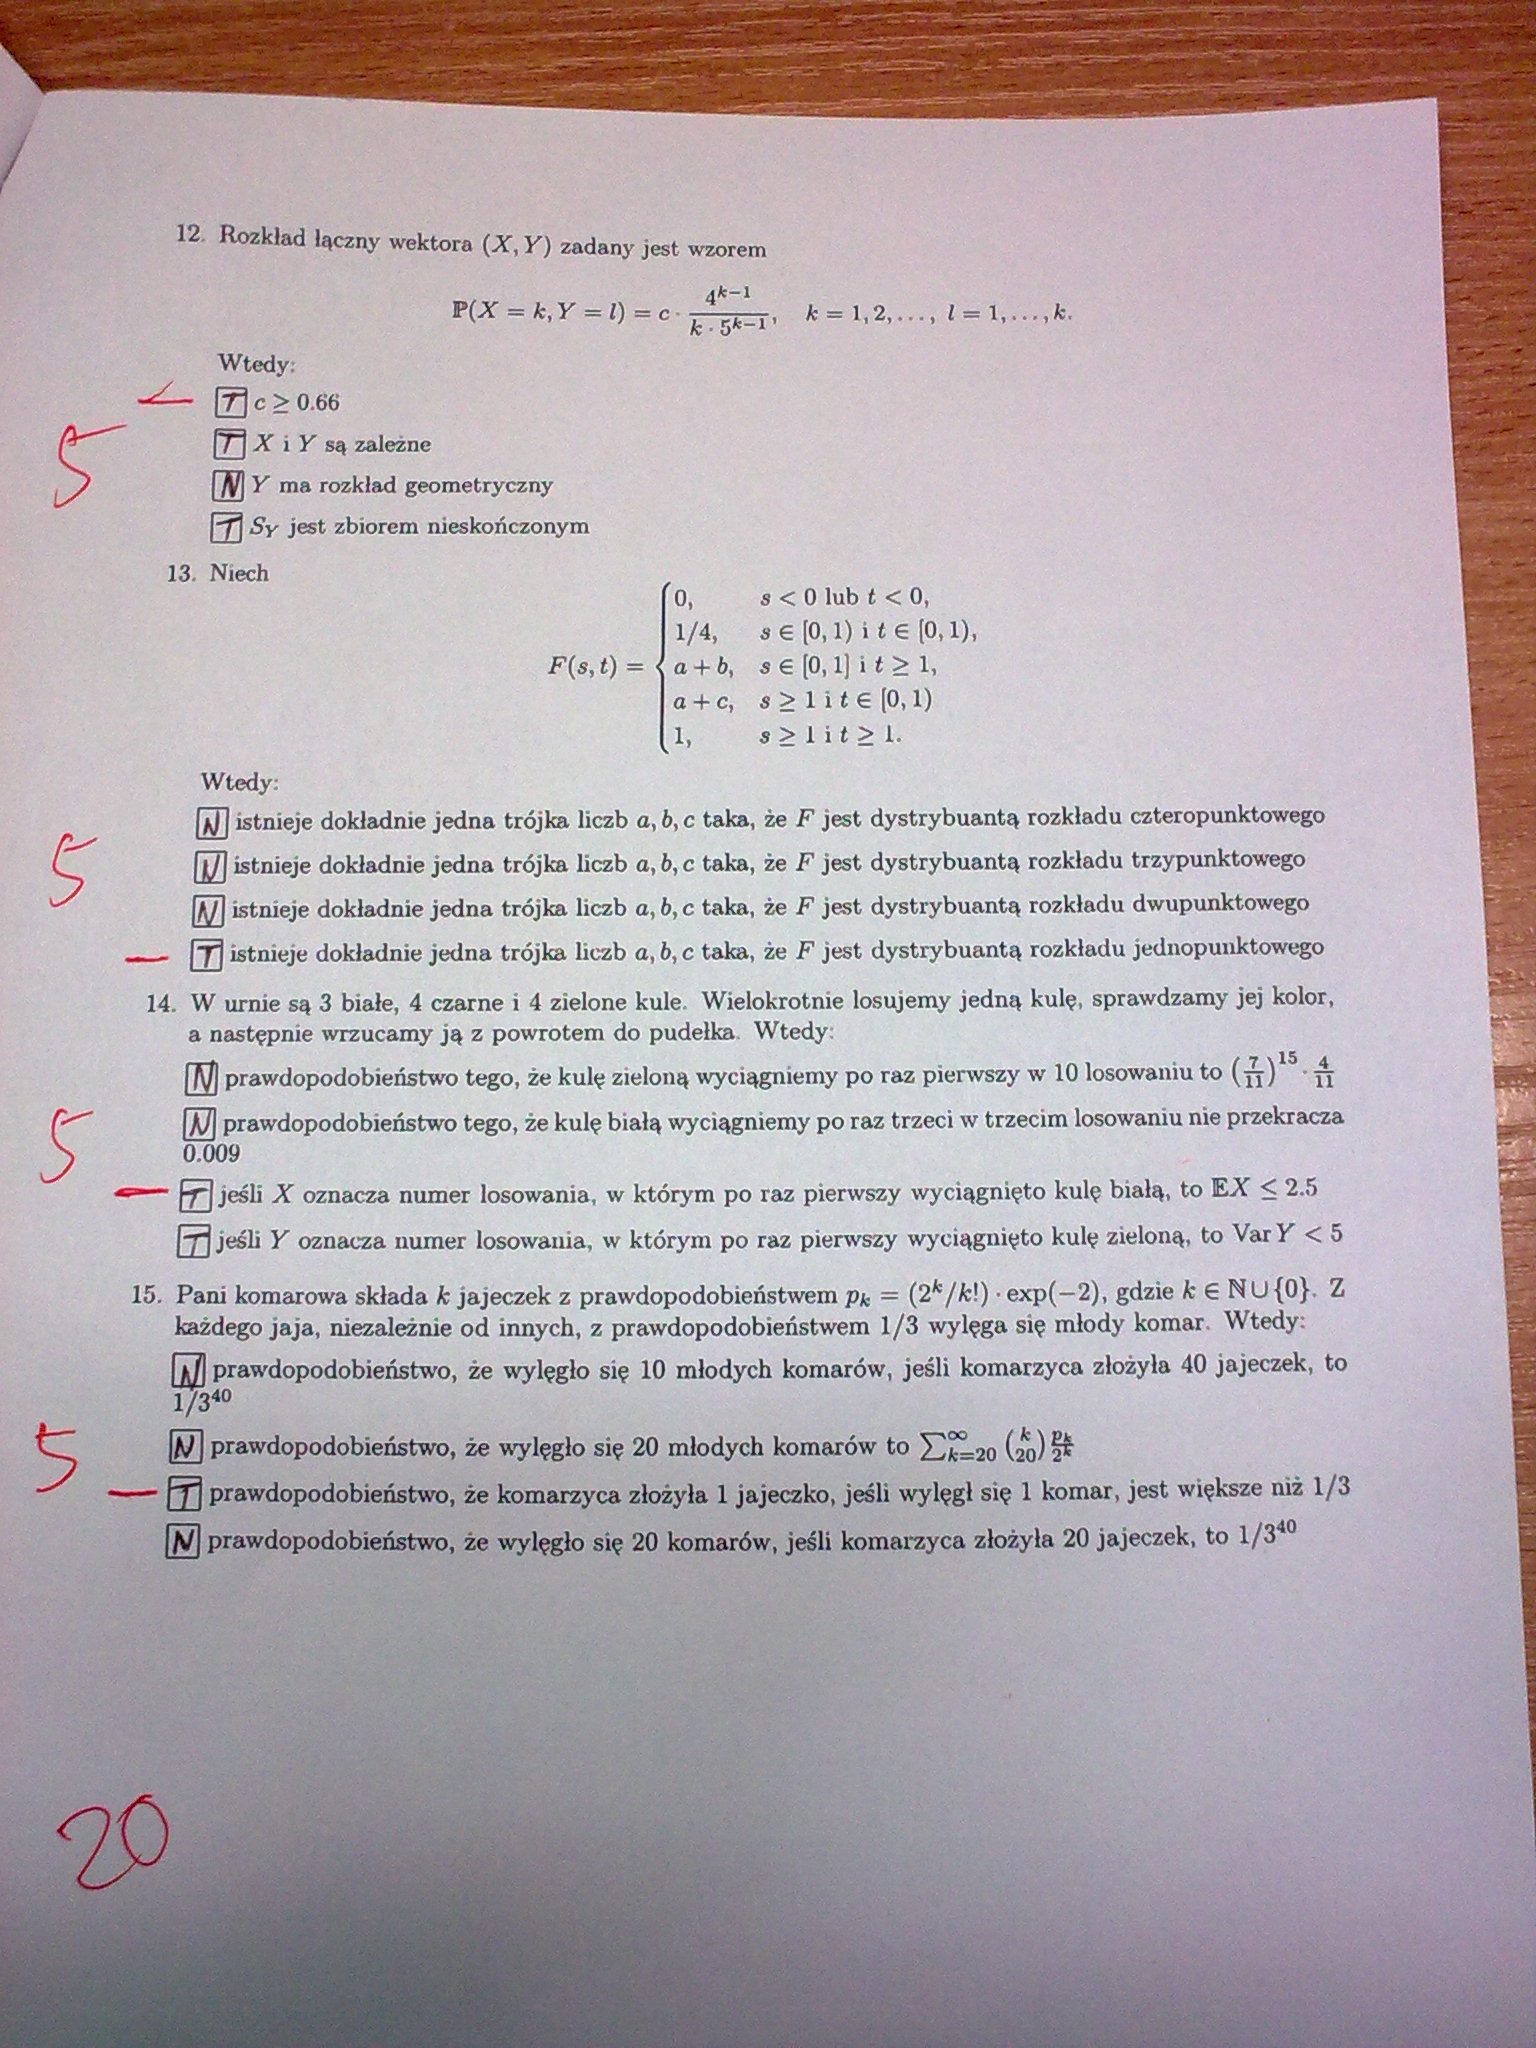 12. Rozkład łączny wektora (X, Y) zadany jest wzorem
ℙ(X = k, Y = l) = c · 4^{k−1} / (k · 5^{k−1}), k = 1, 2, . . . , l = 1, . . . , k.
Wtedy:
T c ≥ 0.66
5
T X i Y są zależne
N Y ma rozkład geometryczny
T S_Y jest zbiorem nieskończonym
13. Niech
F(s, t) = { 0, s < 0 lub t < 0,
1/4, s ∈ [0, 1) i t ∈ [0, 1),
a + b, s ∈ [0, 1] i t ≥ 1,
a + c, s ≥ 1 i t ∈ [0, 1)
1, s ≥ 1 i t ≥ 1.
Wtedy:
N istnieje dokładnie jedna trójka liczb a, b, c taka, że F jest dystrybuantą rozkładu czteropunktowego
5
N istnieje dokładnie jedna trójka liczb a, b, c taka, że F jest dystrybuantą rozkładu trzypunktowego
N istnieje dokładnie jedna trójka liczb a, b, c taka, że F jest dystrybuantą rozkładu dwupunktowego
T istnieje dokładnie jedna trójka liczb a, b, c taka, że F jest dystrybuantą rozkładu jednopunktowego
14. W urnie są 3 białe, 4 czarne i 4 zielone kule. Wielokrotnie losujemy jedną kulę, sprawdzamy jej kolor,
a następnie wrzucamy ją z powrotem do pudełka. Wtedy:
N prawdopodobieństwo tego, że kulę zieloną wyciągniemy po raz pierwszy w 10 losowaniu to (7/11)^15 · 4/11
5
N prawdopodobieństwo tego, że kulę białą wyciągniemy po raz trzeci w trzecim losowaniu nie przekracza
0.009
T jeśli X oznacza numer losowania, w którym po raz pierwszy wyciągnięto kulę białą, to 𝔼X ≤ 2.5
T jeśli Y oznacza numer losowania, w którym po raz pierwszy wyciągnięto kulę zieloną, to Var Y < 5
15. Pani komarowa składa k jajeczek z prawdopodobieństwem p_k = (2^k/k!) · exp(−2), gdzie k ∈ ℕ∪{0}. Z
każdego jaja, niezależnie od innych, z prawdopodobieństwem 1/3 wylęga się młody komar. Wtedy:
N prawdopodobieństwo, że wylęgło się 10 młodych komarów, jeśli komarzyca złożyła 40 jajeczek, to
1/3^40
5
N prawdopodobieństwo, że wylęgło się 20 młodych komarów to ∑_{k=20}^{∞} (k 20) p_k/2^k
T prawdopodobieństwo, że komarzyca złożyła 1 jajeczko, jeśli wylęgł się 1 komar, jest większe niż 1/3
N prawdopodobieństwo, że wylęgło się 20 komarów, jeśli komarzyca złożyła 20 jajeczek, to 1/3^40
20